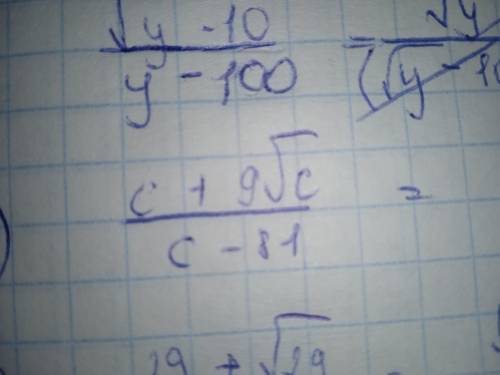 (√y - 10)/(y - 100) = √y
(√y - 10
(c + 9√c)/(c - 81) =
29 + √29